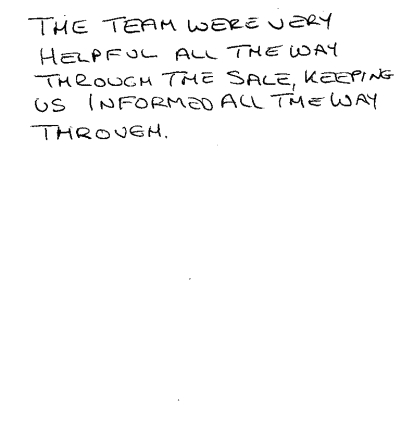 THE TEAM WERE VERY
HELPFUL ALL THE WAY
THROUGH THE SALE, KEEPING
US INFORMED ALL THE WAY
THROUGH.